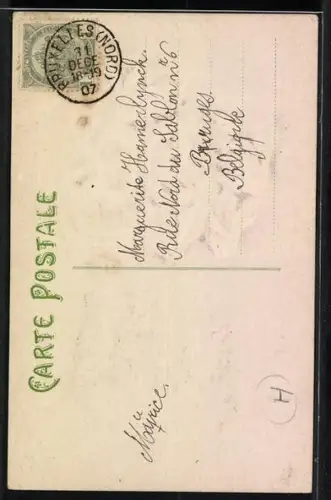 BRUXELLES (NORD)
31
DECE
18-19
07
CARTE POSTALE
Marguerite Hamerlynck.
Rue Nord du Sablon n° 6
Bruges
Belgique
Maurice.
H